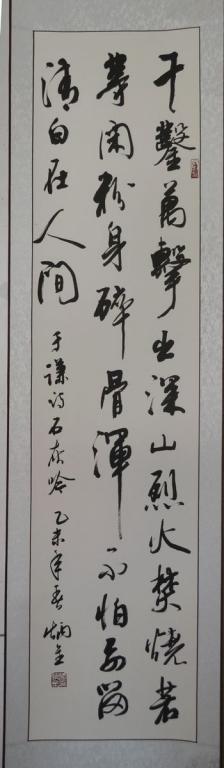 千鑿萬擊出深山烈火焚燒若
等閑粉身碎骨渾不怕要留
清白在人間
于謙诗石灰吟 乙未年春 炳